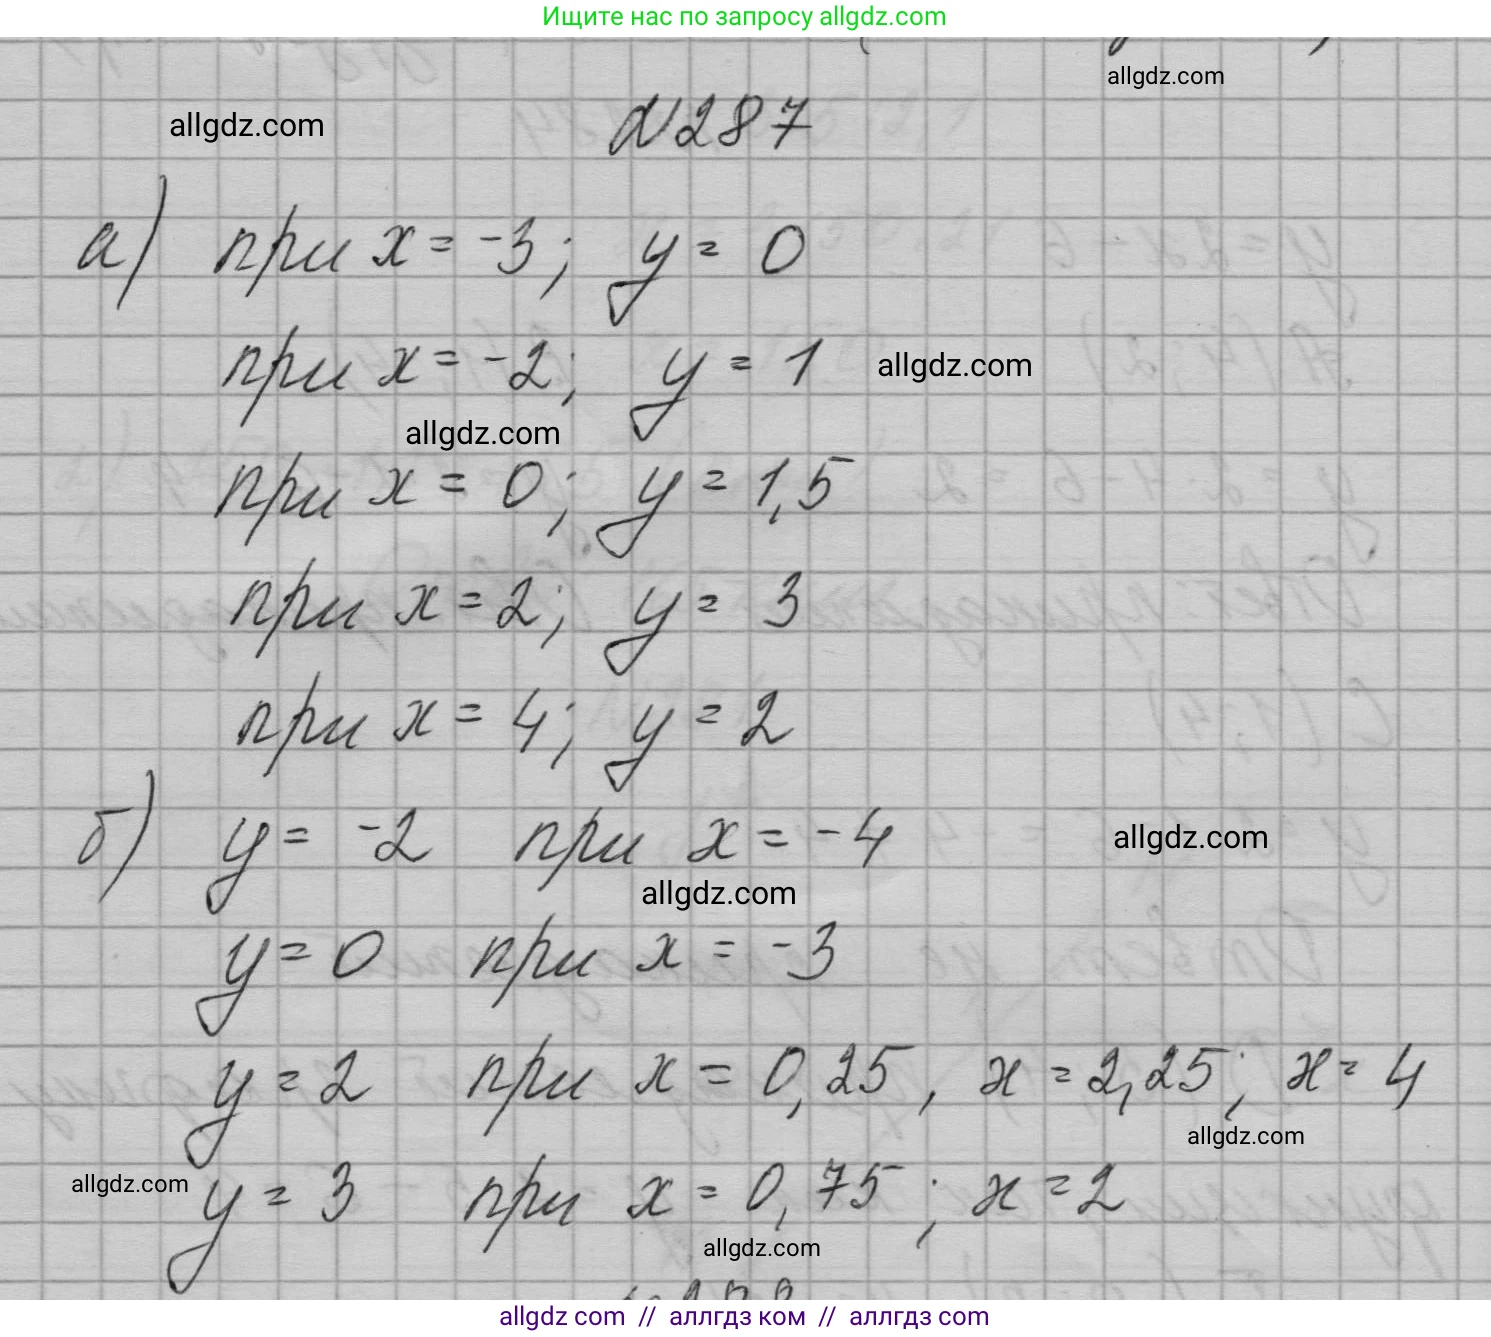 Ищите нас по запросу allgdz.com
allgdz.com
allgdz.com
№287
а) при x = -3; y = 0
при x = -2; y = 1
allgdz.com
allgdz.com
при x = 0; y = 1,5
при x = 2; y = 3
при x = 4; y = 2
б) y = -2 при x = -4
allgdz.com
allgdz.com
y = 0 при x = -3
y = 2 при x = 0,25, x = 2,25; x = 4
allgdz.com
allgdz.com
y = 3 при x = 0,75; x = 2
allgdz.com
allgdz com // аллгдз ком // аллгдз com